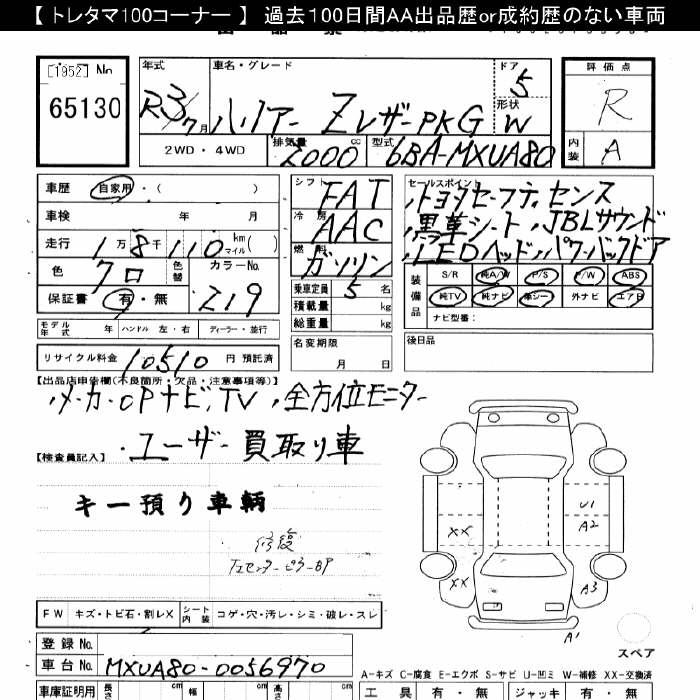 【 トレタマ100コーナー 】 過去100日間AA出品歴or成約歴のない車両
[1952] No
65130
年式
R3/7月
車名・グレード
ハリアー Zレザーpkg
ドア
5
形状
W
評価点
R
内装
A
2WD・4WD
排気量
2000
cc
型式
6BA-MXUA80
車歴
自家用・( )
車検 年 月
走行 1万8千110 km マイル( )
色
クロ
色替
カラーNo.
219
保証書 有・無
シフト
FAT
冷房
AAC
燃料
ガソリン
乗車定員 5 名
積載量 kg
総重量 kg
セールスポイント
トヨタセーフティセンス
黒革シート、JBLサウンド
LEDヘッド、パワーバックドア
装備品
S/R 純A/W P/S P/W ABS
純TV 純ナビ 革シート 外ナビ エアB
ナビ型番:
モデル年式 年 ハンドル 左・右 ディーラー・並行
名変期限
月 日
後日品
リサイクル料金 10510 円 預託済
【出品店申告欄(不良箇所・欠品・注意事項等)】
メーカーOPナビ、TV、全方位モニター
・ユーザー買取り車
【検査員記入】
キー預り車輌
修復
XX
XX
U1
A2
A3
A1
スペア
FW キズ・トビ石・割レX シート内装 コゲ・穴・汚レ・シミ・破レ・スレ
登録 No.
車台 No. MXUA80-0056970
A-キズ C-腐食 E-エクボ S-サビ U-凹ミ W-補修 XX-交換済
車庫証明用 長さ cm 幅 cm 高さ cm
工具 有・無 ジャッキ 有・無